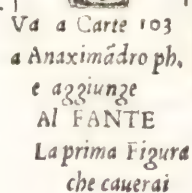 Va a Carte 103
a Anaximãdro ph,
e aggiunge
Al FANTE
La prima Figura
che cauerai